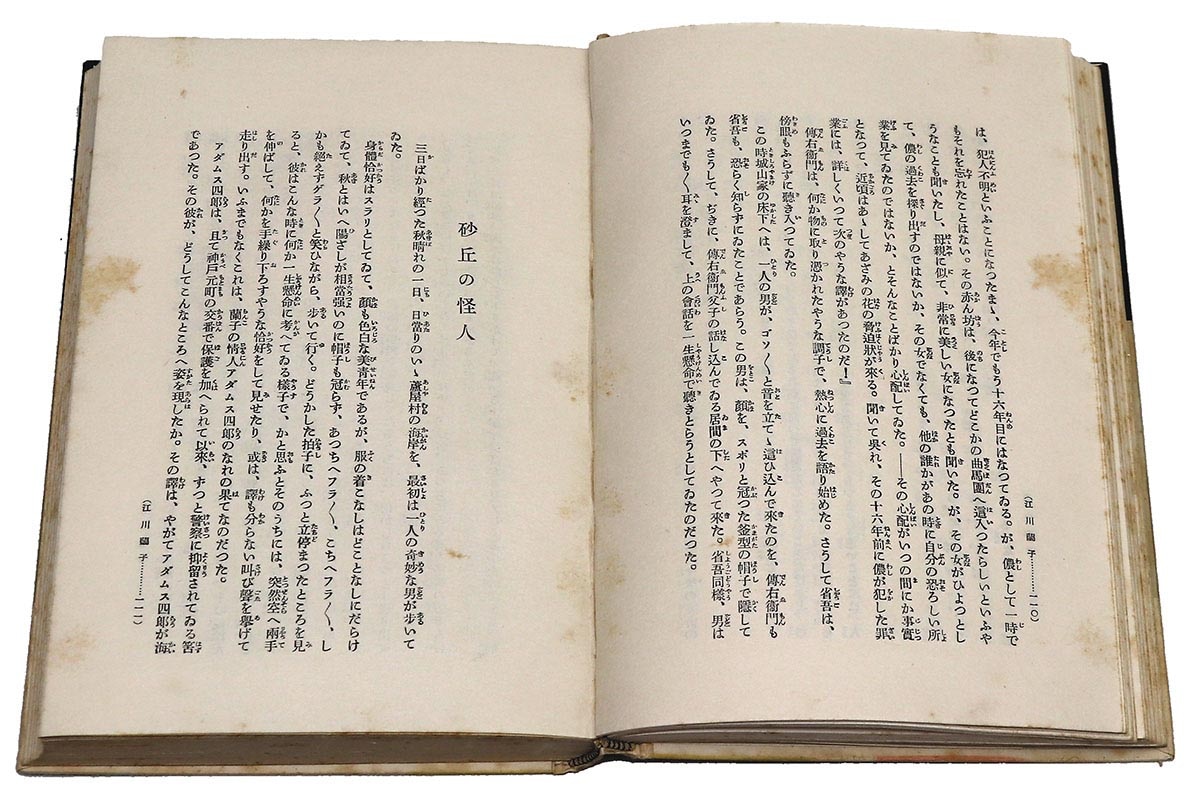 は、犯人不明といふことになつたまゝ、今年でもう十六年目にはなつてゐる。が、儂として一時で
もそれを忘れたことはない。その赤ん坊は、後になつてどこかの曲馬團へ這入つたらしいといふや
うなことも聞いたし、母親に似て、非常に美しい女になつたとも聞いた。が、その女がひよつとし
て、儂の過去を探り出すのではないか、その女でなくても、他の誰かがあの時に自分の恐ろしい所
業を見てゐたのではないか、とそんなことばかり心配してゐた。――その心配がいつの間にか事實
となつて、近頃はあゝしてあざみの花の脅迫狀が來る。聞いて吳れ、その十六年前に儂が犯した罪
業には、詳しくいつて次のやうな譯があつたのだ！』
傳右衞門は、何か物に取り憑かれたやうな調子で、熱心に過去を語り始めた。さうして省吾は、
傍眼もふらずに聽き入つてゐた。
この時城山家の床下へは、一人の男が、ゴソ〱と音を立てゝ這ひ込んで來たのを、傳右衞門も
省吾も、恐らく知らずにゐたことであらう。この男は、顏を、スポリと冠つた釜型の帽子で隱して
ゐた。さうして、ぢきに、傳右衞門父子の話し込んでゐる居間の下へやつて來た。省吾同樣、男は
いつまでも〱耳を澄まして、上の會話を一生懸命で聽きとらうとしてゐたのだつた。
（江川蘭子………一一〇）
砂丘の怪人
三日ばかり經つた秋晴れの一日、日當りのいゝ蘆屋村の海岸を、最初は一人の奇妙な男が步いて
ゐた。
身體恰好はスラリとしてゐて、顏も色白な美靑年であるが、服の着こなしはどことなしにだらけ
てゐて、秋とはいへ陽ざしが相當强いのに帽子も冠らず、あつちへフラ〱、こちへフラ〱、し
かも絕えずゲラ〱と笑ひながら、步いて行く。どうかした拍子に、ふつと立停まつたところを見
ると、彼はこんな時に何か一生懸命に考へてゐる樣子で、かと思ふとそのうちには、突然空へ兩手
を伸ばして、何かを手繰り下ろすやうな恰好をして見せたり、或は、譯も分らない叫び聲を擧げて
走り出す。いふまでもなくこれは、蘭子の情人アダムス四郞のなれの果てなのだつた。
アダムス四郞は、且て神戶元町の交番で保護を加へられて以來、ずつと警察に抑留されてゐる筈
であつた。その彼が、どうしてこんなところへ姿を現したか。その譯は、やがてアダムス四郞が海
（江川蘭子………一一一）